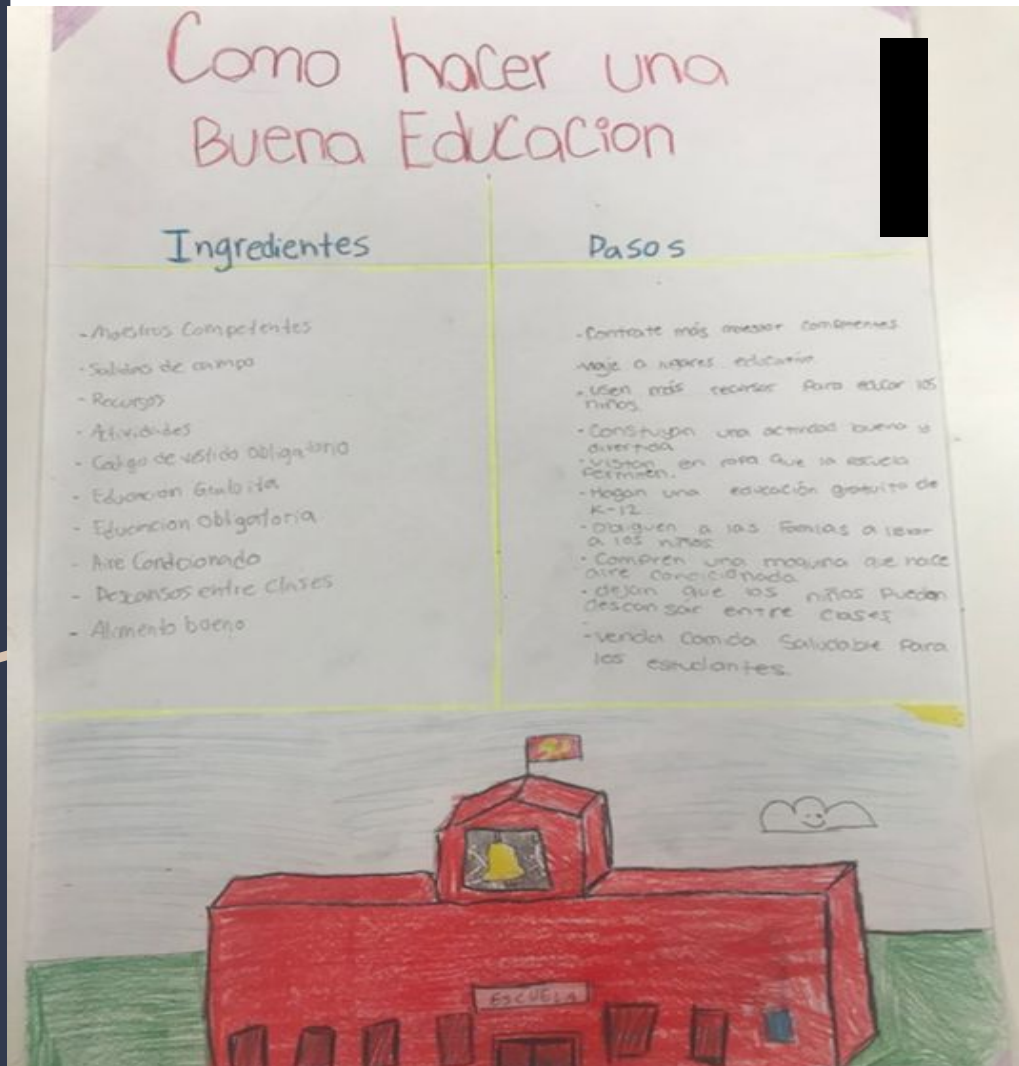 Como hacer una
Buena Educacion
Ingredientes
- Maestros Competentes
- Salidas de campo
- Recursos
- Atividades
- Codigo de vestido Obligatorio
- Educacion Gratuita
- Educacion Obligatoria
- Aire Condcionado
- Descansos entre clases
- Alimento bueno
Pasos
- Contrate más
viaje a lugares educativo
- usen más recursos Para educar los
niños.
- Constuyan una actividad buena y
divertida
- Vistan en ropa que la escuela
Permiten.
- Hagan una educación gratuito de
K-12
- Obliguen a las a llevar
a los niños
- Compren una maquina que hace
aire concicionada
- dejan que los niños puedan
descansar entre clases
- venda Comida Saludable Para
los estudiantes.
ESCUELA